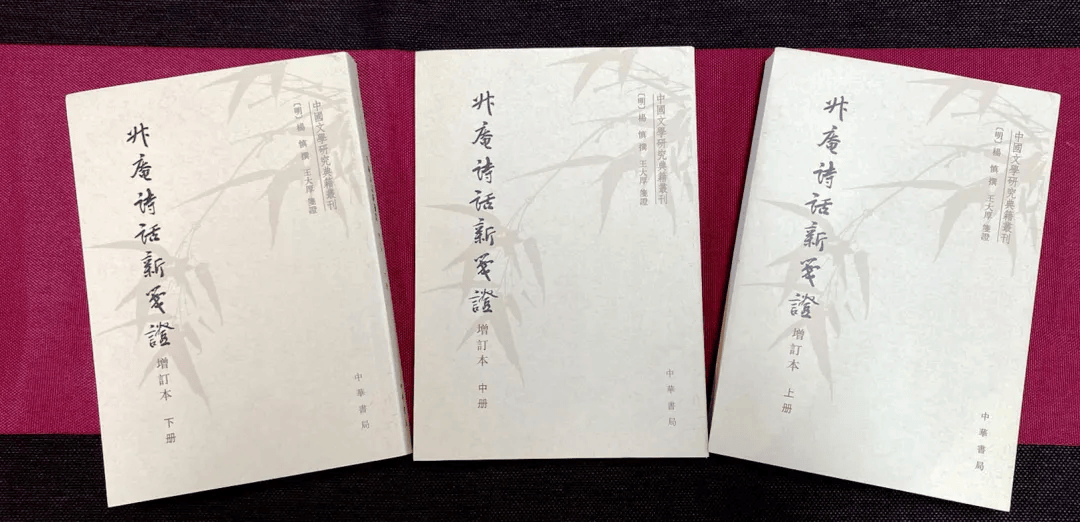 中國文學研究典籍叢刊
〔明〕楊慎 撰 王大厚 箋證
升庵詩話新箋證 增訂本 上册
中華書局
中國文學研究典籍叢刊
〔明〕楊慎 撰 王大厚 箋證
升庵詩話新箋證 增訂本 中册
中華書局
中國文學研究典籍叢刊
〔明〕楊慎 撰 王大厚 箋證
升庵詩話新箋證 增訂本 下册
中華書局